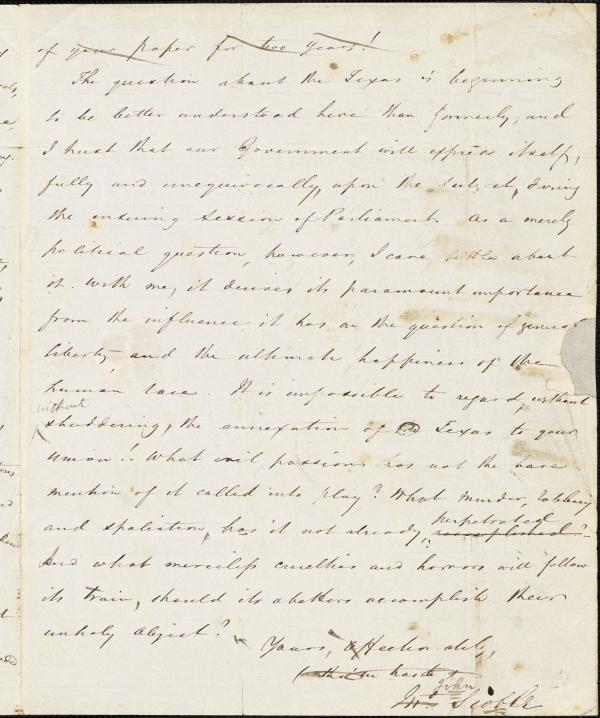 of your paper for two years!
The question about the Texas is beginning
to be better understood here than formerly; and
I trust that our Government will express itself,
fully and unequivocally, upon the subject, during
the ensuing Session of Parliament. As a merely
political question, however, I care little about
it. With me, it derives its paramount importance
from the influence it has on the question of general
liberty, and the ultimate happiness of the
human race. It is impossible to regard, without
without
shuddering, the annexation of Texas to your
union! What evil passions has not the bare
mention of it called into play? What murder, robbery
perpetrated
and spoliation, has it not already, accomplished?
And what merciless cruelties and horrors will follow
its train, should its abettors accomplish their
unholy object?
Yours, affectionately,
John
Jno. Scoble